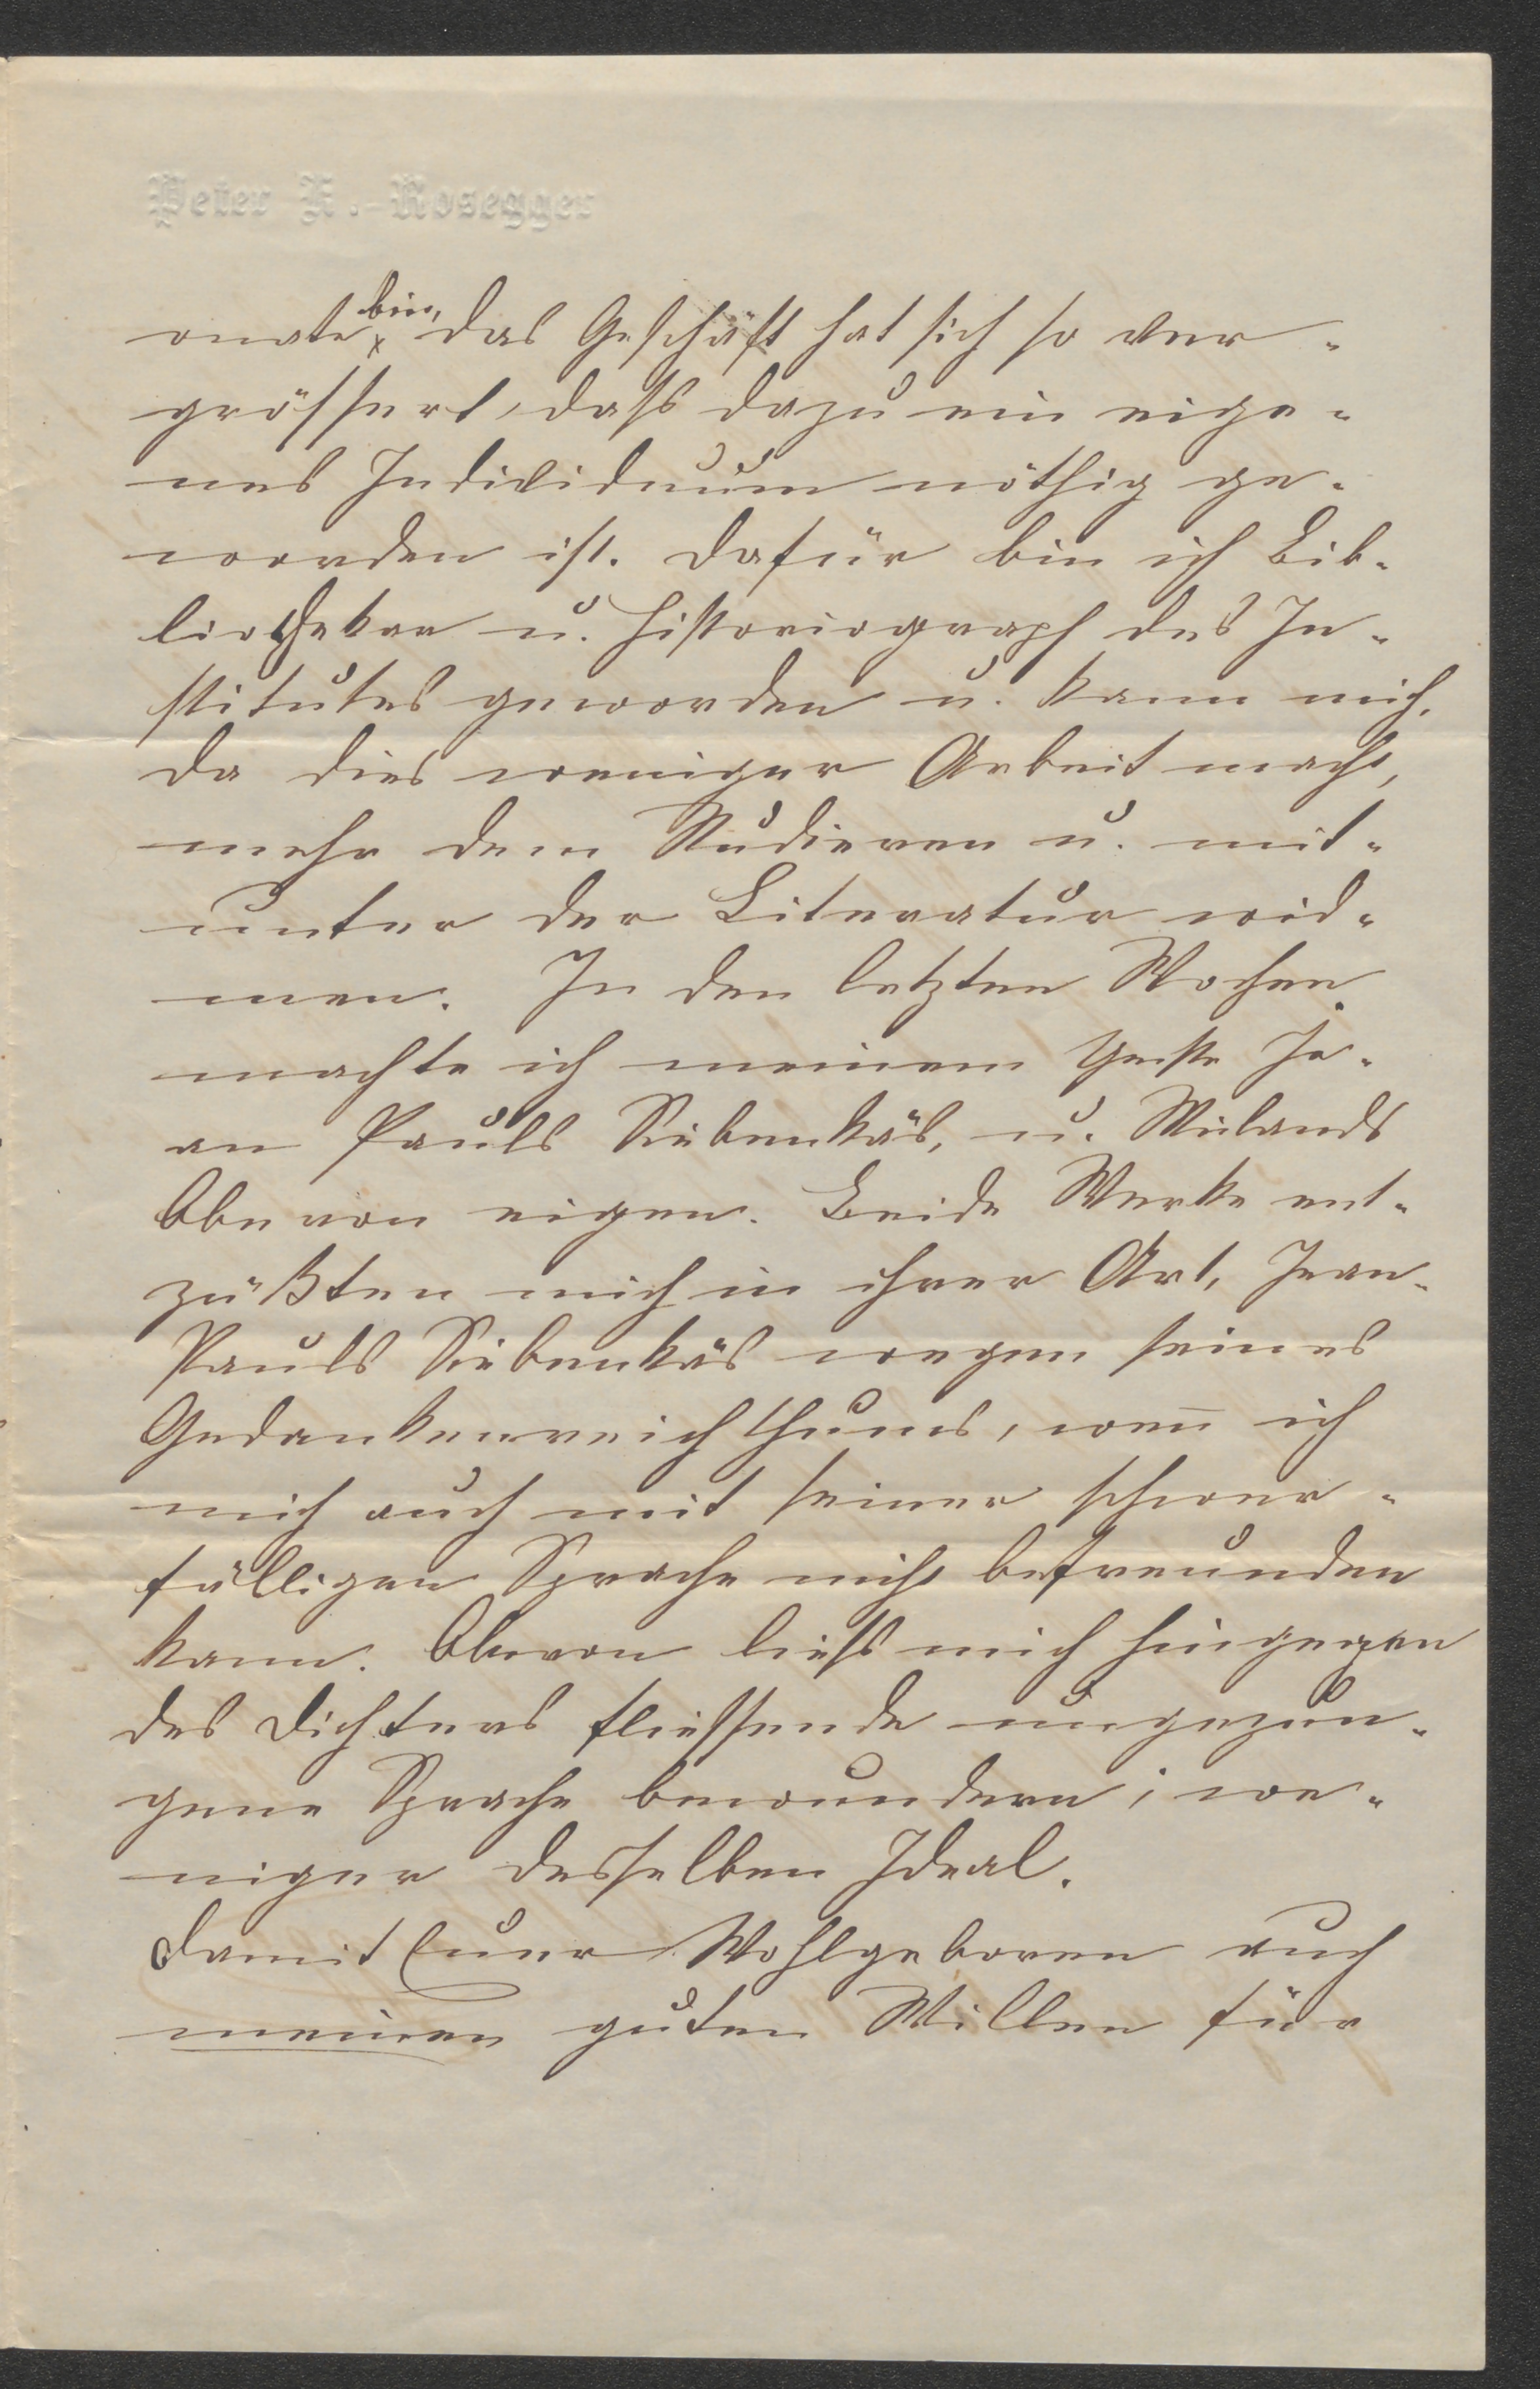 Peter K. Rosegger
onate bin, das Geschäft hat sich so ver-
grössert, dass dazu ein eige-
nes Individuum nöthig ge-
worden ist. Dafür bin ich Bib-
liothekar u. Historiograph des In-
stitutes geworden u. kann mich,
da dies weniger Arbeit macht,
mehr dem Studieren u. mit-
unter der Literatur wid-
men. In den letzten Wochen
machte ich meinem Geiste Je-
an Pauls Siebenkäs, u. Wielands
Oberon eigen. Beide Werke ent-
zückten mich in ihrer Art, Jean-
Pauls Siebenkäs wegen seines
Gedankenreichthums, wen̄ ich
mich auch mit seiner schwer-
fälligen Sprache nicht befreunden
kann. Oberon liess mich hingegen
des Dichters fliessende ungezwun-
gene Sprache bewundern; we-
niger desselben Ideal.
Damit Euer Wohlgeboren auch
meinen guten Willen für